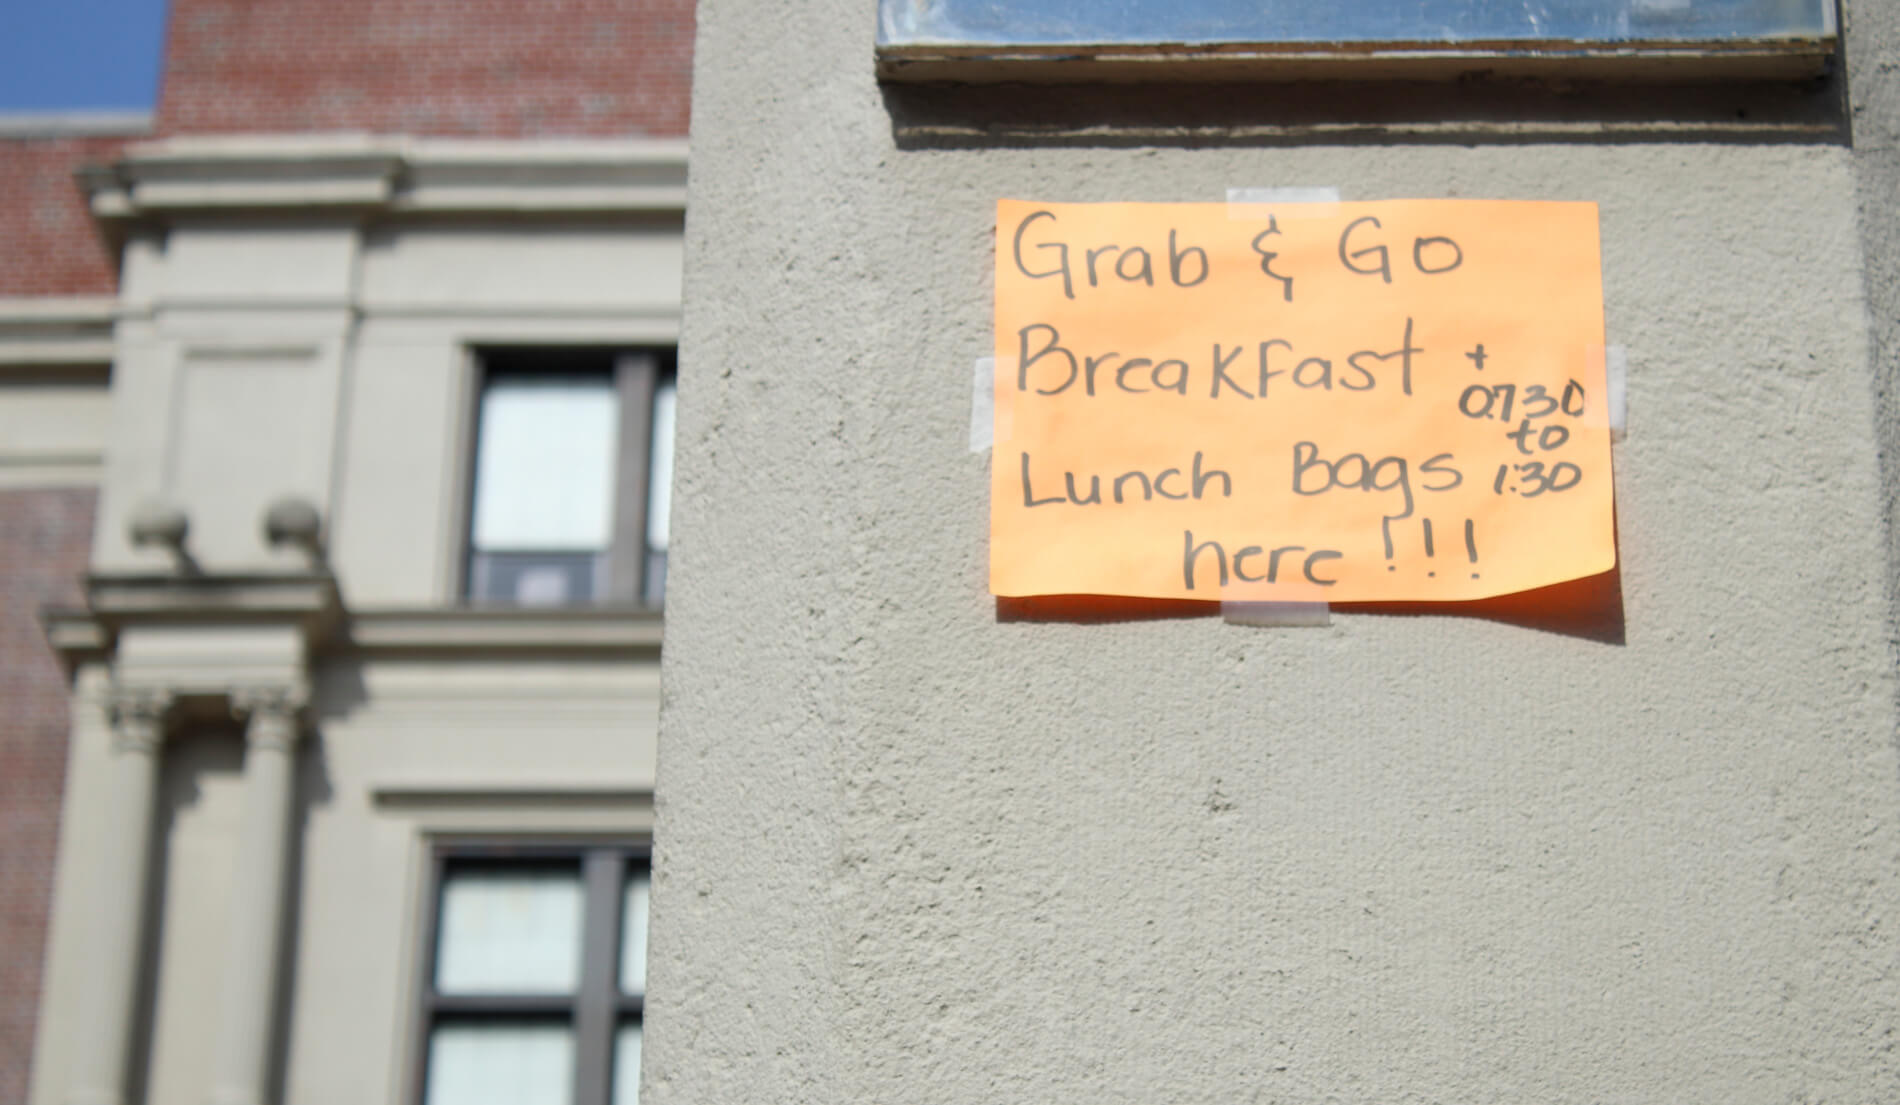 Grab & Go
Breakfast +
0730
to
Lunch Bags 1:30
here!!!